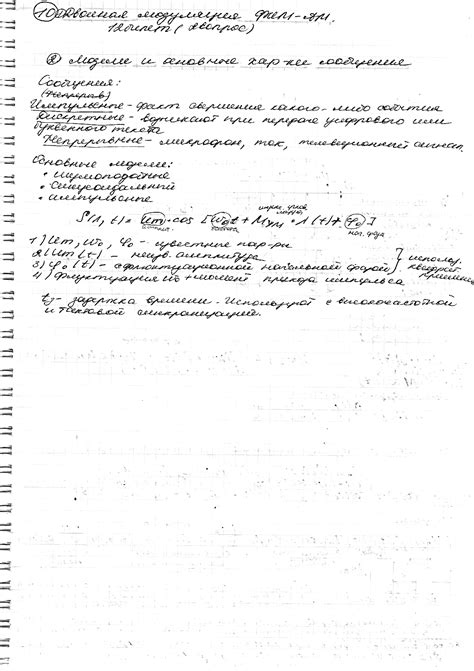 10) Двойная модуляция ФКМ-АМ.
12 билет (2 вопрос)
② Модели и основные хар-ки сообщения
Сообщения:
(Непрерыв)
Импульсные - факт свершение какого-либо события
Дискретные - возникают при передаче цифрового или
буквенного текста
Непрерывные - микрофон, ток, телевизионный сигнал.
Основные модели:
• шумоподобные
• синусоидальный
• импульсные
S(λ, t) = Um · cos [ω₀t + Mчм · λ(t) + φ₀]
частота
нач. фаза
1) Um, ω₀, φ₀ - известные пар-ры
2) Um(t) - неизв. амплитуда
3) φ₀(t) - с флюктуационной начальной фазой
4) флуктуация ω₀ + момент прихода импульса
использ.
квадрат.
tз - задержка времени. Используют с высокочастотной
и тактовой синхронизацией.